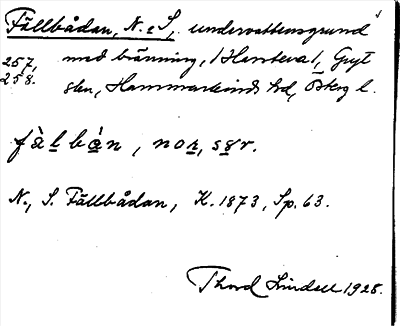 Fällbådan, N. o S., undervattensgrund
257, med bränning, /Harstena/, Gryt
258. skn, Hammarkinds hd, Österg l.
fàlbán, nor, sør.
N., S. Fällbådan, K. 1873, Sp. 63.
Thord Lindell 1928.